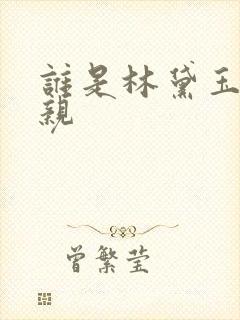 誰是林黛玉
親
曾繁莹